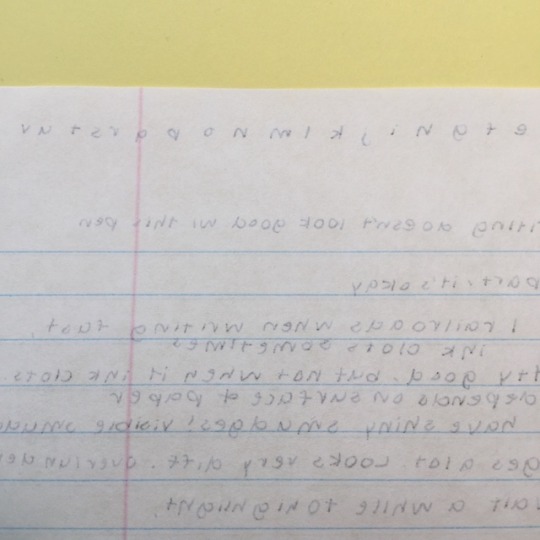 e f g h i j k l m n o p q r s t u v
iting doesn't look good w/ this pen
part, it's okay
I railroads when writing fast.
ink clots sometimes
tty good, but not when it ink clots.
depends on surface of paper
have shiny smudges! visible smud
ges a lot. Looks very diff. over
ait a while to highlight.